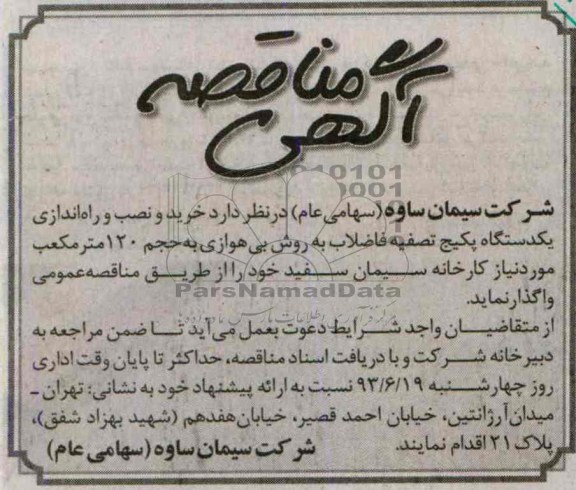 آگهی مناقصه
شرکت سیمان ساوه (سهامی عام) در نظر دارد خرید و نصب و راه‌اندازی
یکدستگاه پکیج تصفیه فاضلاب به روش بی هوازی به حجم ۱۲۰ مترمکعب
موردنیاز کارخانه سیمان سفید خود را از طریق مناقصه عمومی
واگذار نماید.
از متقاضیان واجد شرایط دعوت بعمل می آید تا ضمن مراجعه به
دبیرخانه شرکت و با دریافت اسناد مناقصه، حداکثر تا پایان وقت اداری
روز چهارشنبه ۹۳/۶/۱۹ نسبت به ارائه پیشنهاد خود به نشانی: تهران -
میدان آرژانتین، خیابان احمد قصیر، خیابان هفدهم (شهید بهزاد شفق)،
پلاک ۲۱ اقدام نمایند.
شرکت سیمان ساوه (سهامی عام)
ParsNamadData